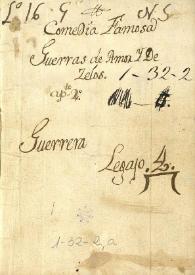 Lº 16. G N. 5
Comedia Famosa
Guerras de Amor Y De
Zelos. 1-32-2
apto 2º
Guerrera
Legajo. 4.
1-32-2, a